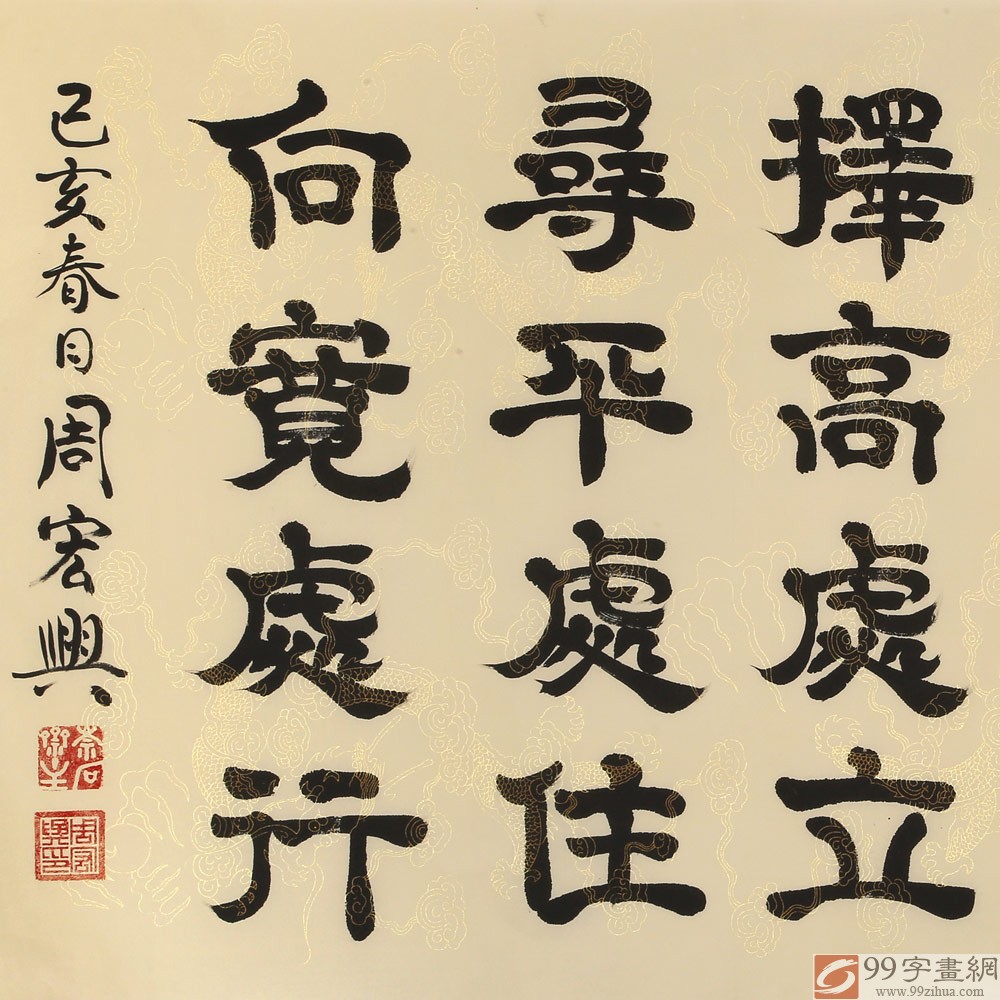 擇高處立
尋平處住
向寬處行
己亥春日周宏興
周宏興印
99字畫網
www.99zihua.com